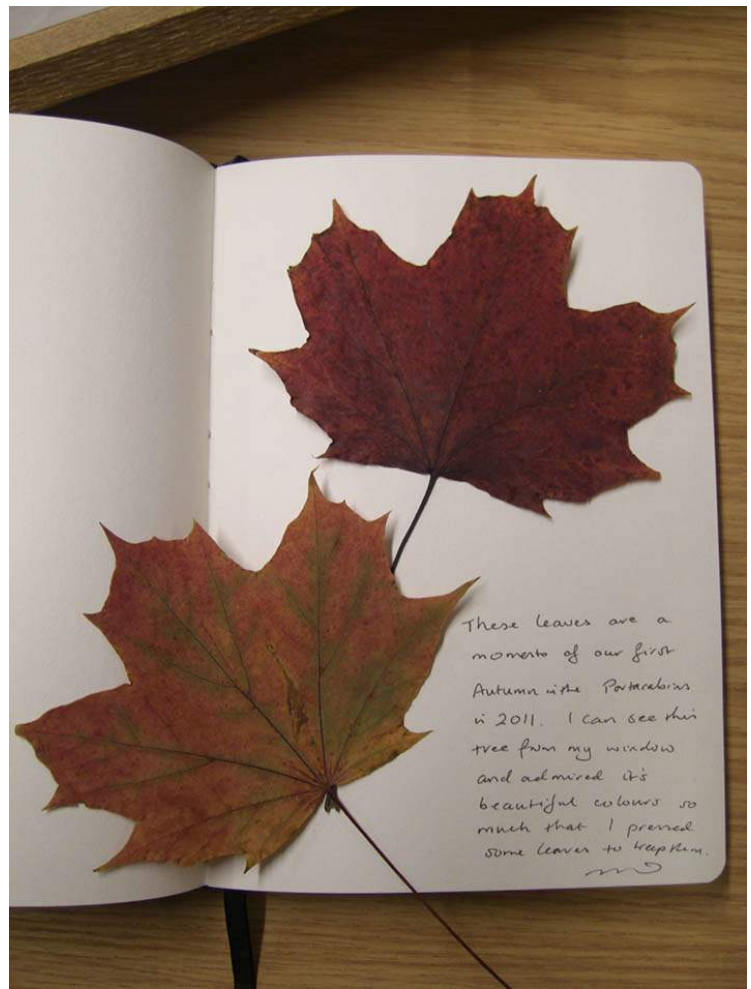 These leaves are a
momento of our first
Autumn in the Portacabins
in 2011. I can see this
tree from my window
and admired it's
beautiful colours so
much that I pressed
some leaves to keep them.